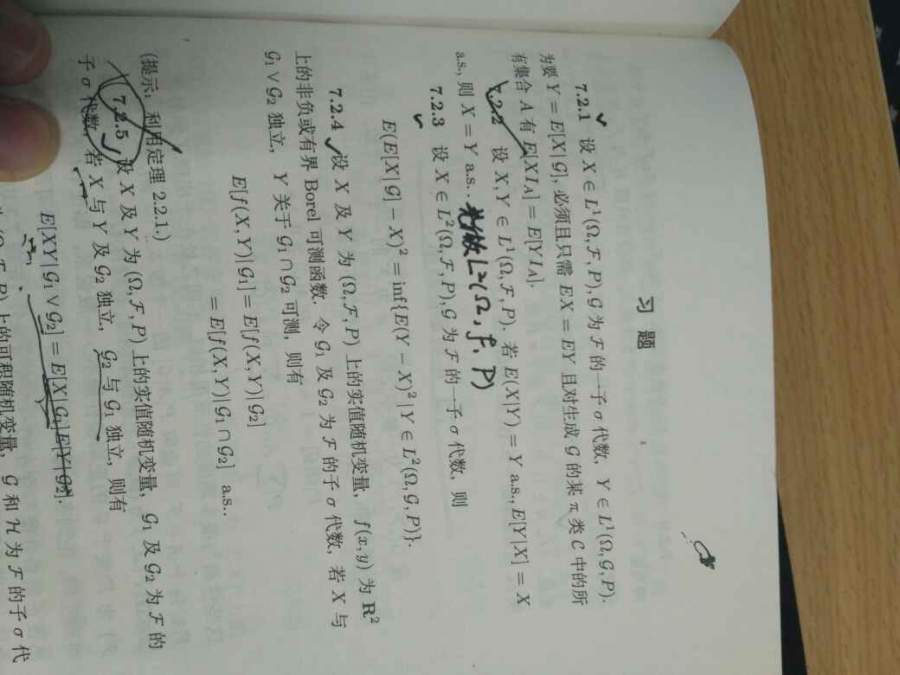 习题
7.2.1 设 X ∈ L¹(Ω, F, P), G 为 F 的一子 σ 代数, Y ∈ L¹(Ω, G, P).
为要 Y = E[X|G], 必须且只需 EX = EY 且对生成 G 的某 π 类 C 中的所
有集合 A 有 E[XI_A] = E[YI_A].
7.2.2 设 X, Y ∈ L¹(Ω, F, P), 若 E(X|Y) = Y a.s., E[Y|X] = X
a.s., 则 X = Y a.s..
先做L²(Ω, F, P)
7.2.3 设 X ∈ L²(Ω, F, P), G 为 F 的一子 σ 代数, 则
E(E[X|G] − X)² = inf{E(Y − X)²|Y ∈ L²(Ω, G, P)}.
7.2.4 设 X 及 Y 为 (Ω, F, P) 上的实值随机变量, f(x, y) 为 R²
上的非负或有界 Borel 可测函数. 令 G₁ 及 G₂ 为 F 的子 σ 代数, 若 X 与
G₁ ∨ G₂ 独立, Y 关于 G₁ ∩ G₂ 可测, 则有
E[f(X, Y)|G₁] = E[f(X, Y)|G₂]
= E[f(X, Y)|G₁ ∩ G₂] a.s..
(提示: 利用定理 2.2.1.)
7.2.5 设 X 及 Y 为 (Ω, F, P) 上的实值随机变量, G₁ 及 G₂ 为 F 的
子 σ 代数, 若 X 与 Y 及 G₂ 独立, G₂ 与 G₁ 独立, 则有
E[XY|G₁ ∨ G₂] = E[X|G₁]E[Y|G₂].
(Ω, F, P) 上的可积随机变量, G 和 H 为 F 的子 σ 代